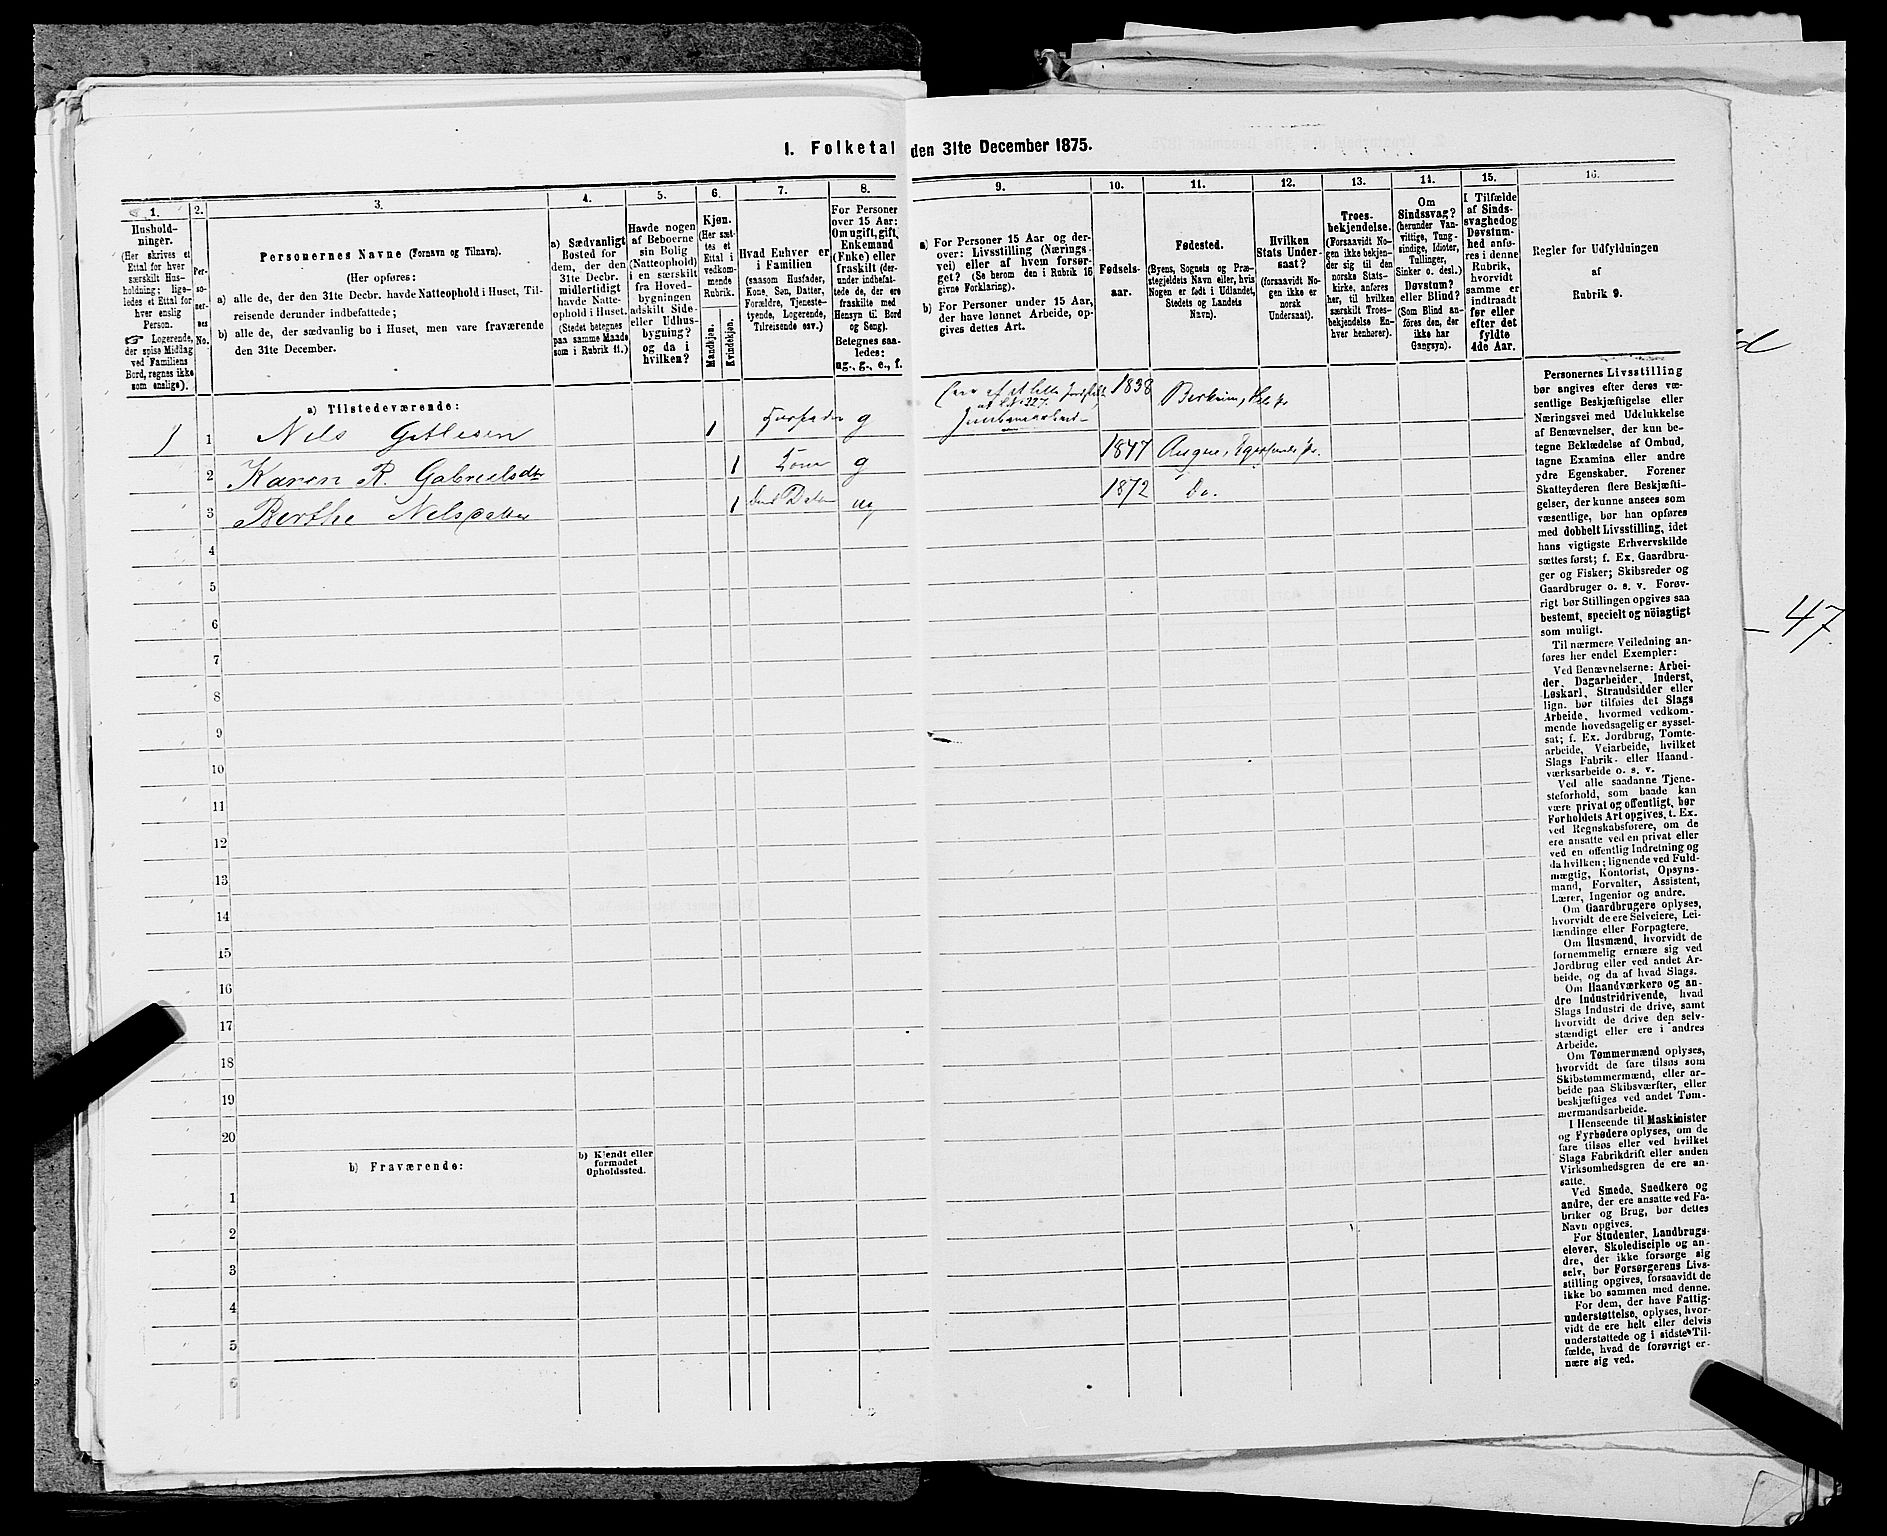 1. Folketal den 31te December 1875.
1.
Hushold-
ninger.
(Her skrives et
Ettal for hver
særskilt Hus-
holdning; lige-
ledes et Ettal for
hver enslig
Person.
☞ Logerende,
der spise Middag
ved Familiens
Bord, regnes ikke
som enslige).
2.
Per-
so-
ner-
nes
No.
3.
Personernes Navne (Fornavn og Tilnavn).
(Her opføres:
a) alle de, der den 31te Decbr. havde Natteophold i Huset, Til-
reisende derunder indbefattede;
b) alle de, der sædvanlig bo i Huset, men vare fraværende
den 31te December.
4.
a) Sædvanligt
Bosted for
dem, der den
31te Decbr.
midlertidigt
havde Natte-
ophold i Huset.
(Stedet betegnes
paa samme Maade
som i Rubrik 11.)
5.
Havde nogen
af Beboerne
sin Bolig
(Natteophold)
i en særskilt
fra Hoved-
bygningen
adskilt Side-
eller Udhus-
bygning?
og da i
hvilken?
6.
Kjøn.
(Her sæt-
tes et
Ettal i
vedkom-
mende
Rubrik.
Mandkjøn.
Kvindekjøn.
7.
Hvad Enhver er
i Familien
(saasom Husfader,
Kone, Søn, Datter,
Forældre, Tjeneste-
tyende, Logerende,
Tilreisende osv.)
8.
For Personer
over 15 Aar:
Om ugift, gift,
Enkemand
(Enke) eller
fraskilt (der-
under indbefat-
tede de, der ere
fraskilte med
Hensyn til Bord
og Seng).
Betegnes saa-
ledes:
ug., g., e., f.
9.
a) For Personer 15 Aar og der-
over: Livsstilling (Nærings-
vei) eller af hvem forsør-
get? (Se herom den i Rubrik 16
givne Forklaring).
b) For Personer under 15 Aar,
der have lønnet Arbeide, op-
gives dettes Art.
10.
Fødsels-
aar.
11.
Fødested.
(Byens, Sognets og Præ-
stegjeldets Navn eller, hvis
Nogen er født i Udlandet,
Stedets og Landets
Navn).
12.
Hvilken
Stats Under-
saat?
(forsaavidt No-
gen ikke er
norsk
Undersaat).
13.
Troes-
bekjendelse.
(Forsaavidt No-
gen ikke bekjen-
der sig til den
norske Stats-
kirke, anføres
her, til hvilken
særskilt Troes-
bekjendelse En-
hver henhører).
14.
Om
Sindssvag?
(herunder Van-
vittige, Tung-
sindige, Idioter,
Sinker o. desl.)
Døvstum?
eller Blind?
(Som Blind an-
føres den, der
ikke har
Gangsyn).
15.
I Tilfælde
af Sinds-
svaghed og
Døvstum-
hed anfø-
res i denne
Rubrik,
hvorvidt
samme er
indtraadt
før eller
efter det
fyldte
4de Aar.
16.
Regler for Udfyldningen
af
Rubrik 9.
a) Tilstedeværende:
1 1 Nels Gitlesen 1 Husfader g 1838 Berkreim, Hels ps
2 Karen R. Gabrielsdtr 1 Kone g 1847 Augne, Egersunds ps.
3 Berthe Nelsdatter 1 Datter ug 1872 Do.
4
5
6
7
8
9
10
11
12
13
14
15
16
17
18
19
20
b) Fraværende:
b) Kjendt eller
formodet
Opholdssted.
1
2
3
4
5
6
Personernes Livsstilling
bør angives efter deres væ-
sentlige Beskjæftigelse eller
Næringsvei med Udelukkelse
af Benævnelser, der kun be-
tegne Beklædelse af Ombud,
tagne Examina eller andre
ydre Egenskaber. Forener
Skatteyderen flere Beskjæfti-
gelser, der kunne ansees som
væsentlige, bør han opføres
med dobbelt Livsstilling, idet
hans vigtigste Erhvervskilde
sættes først; f. Ex. Gaardbru-
ger og Fisker; Skibsreder og
Gaardbruger o. s. v. Forøv-
rigt bør Stillingen opgives saa
bestemt, specielt og nøiagtigt
som muligt.
Til nærmere Veiledning an-
føres her endel Exempler:
Ved Benævnelserne: Arbei-
der, Dagarbeider, Inderst,
Løskarl, Strandsidder eller
lign. bør tilføies det Slags
Arbeide, hvormed vedkom-
mende hovedsagelig er syssel-
sat; f. Ex. Jordbrug, Tomte-
arbeide, Veiarbeide, hvilket
Slags Fabrik- eller Haand-
værksarbeide o. s. v.
Ved alle saadanne Tjene-
steforhold, som baade kan
være privat og offentligt, bør
Forholdets Art opgives, t. Ex.
ved Regnskabsførere, om de
ere ansatte ved en privat eller
ved en offentlig Indretning og
da hvilken; lignende ved Fuld-
mægtig, Kontorist, Opsyns-
mand, Forvalter, Assistent,
Lærer, Ingeniør og andre.
Om Gaardbrugere oplyses,
hvorvidt de ere Selveiere, Lei-
lændinge eller Forpagtere.
Om Husmænd, hvorvidt de
fornemmelig ernære sig ved
Jordbrug eller ved andet Ar-
beide, og da af hvad Slags.
Om Haandværkere og an-
dre Industridrivende, hvad
Slags Industri de drive, samt
hvorvidt de drive den selv-
stændigt eller ere i andres
Arbeide.
Om Tømmermænd oplyses,
hvorvidt de fare tilsøs som
Skibstømmermænd, eller ar-
beide paa Skibsværfter, eller
beskjæftiges ved andet Tøm-
mermandsarbeide.
I Henseende til Maskinister
og Fyrbødere oplyses, om de
fare tilsøs eller ved hvilket
Slags Fabrikdrift eller anden
Virksomhedsgren de ere an-
satte.
Ved Smede, Snedkere og
andre, der ere ansatte ved Fa-
briker og Brug, bør dettes
Navn opgives.
For Studenter, Landbrugs-
elever, Skoledisciple og an-
dre, der ikke forsørge sig
selv, bør Forsørgerens Livs-
stilling opgives, forsaavidt de
ikke bo sammen med denne.
For dem, der have Fattig-
understøttelse, oplyses, hvor-
vidt de ere helt eller delvis
understøttede og i sidste Til-
fælde, hvad de forøvrigt er-
nære sig ved.
47